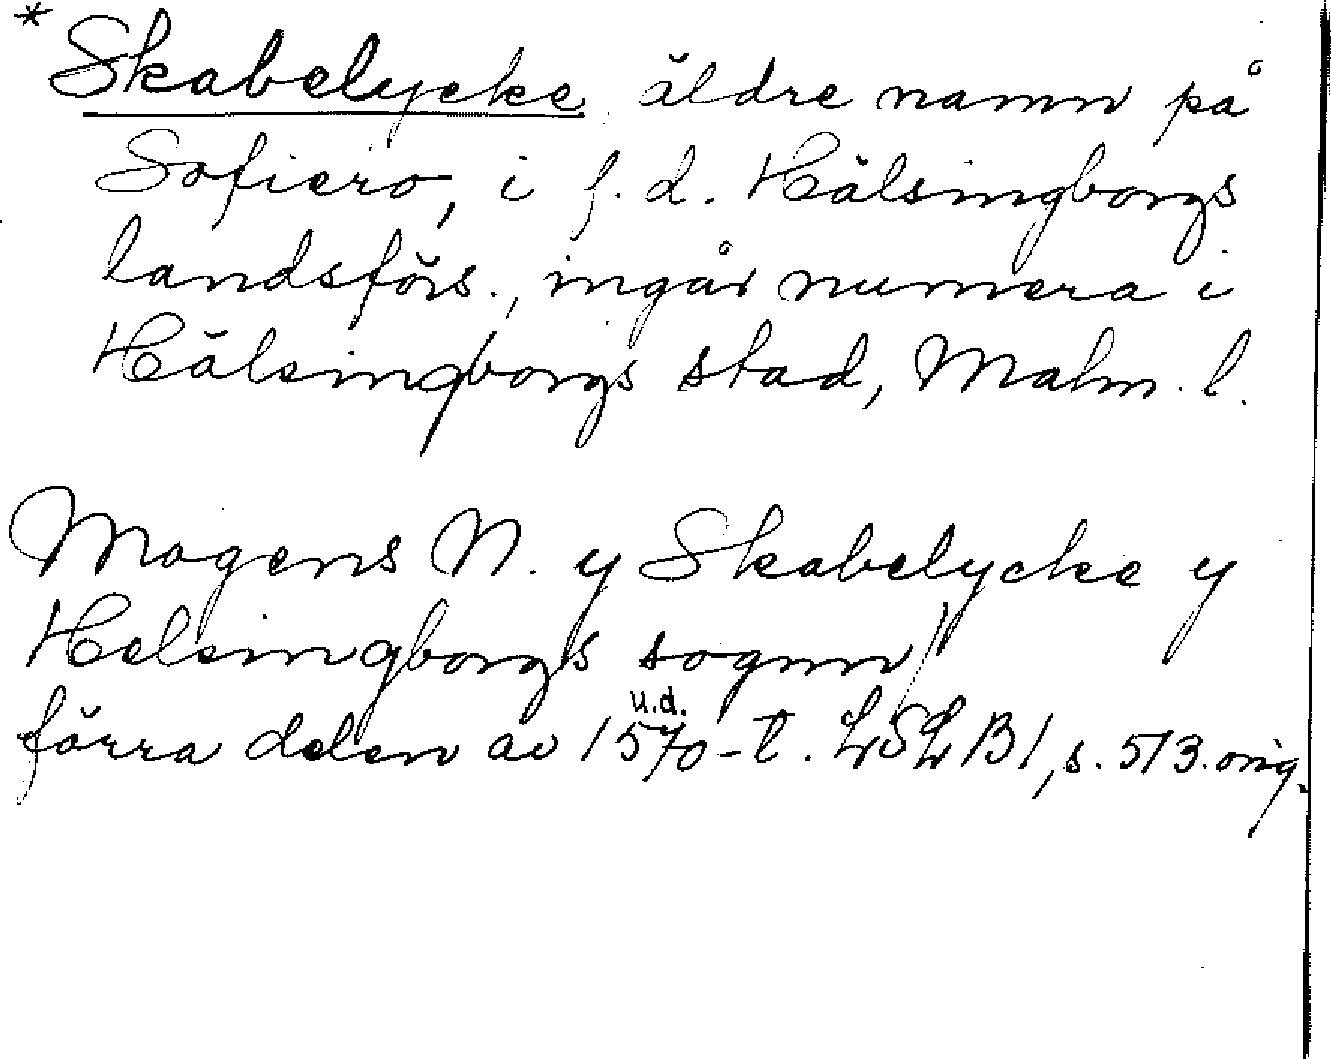 * Skabelycke äldre namn på
Sofiero, i f.d. Hälsingborgs
landsförs., ingår numera i
Hälsingborgs stad, Malm. l.
Mogens N. y Skabelycke y
Helsingborgs sognn
förra delen av 1570-t. u.d. LSLB1, s. 513. orig.